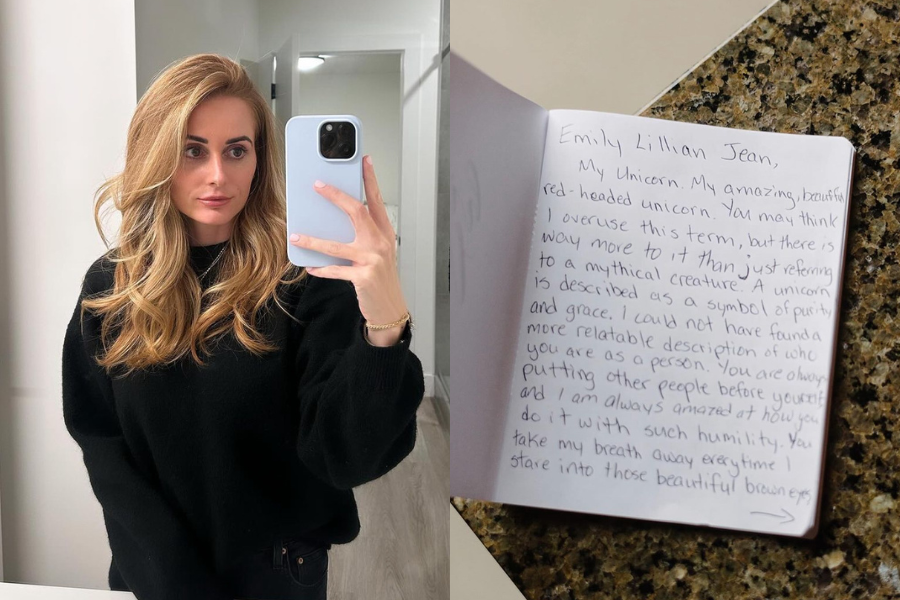 Emily Lillian Jean,
My Unicorn. My amazing, beautiful
red-headed unicorn. You may think
I overuse this term, but there is
way more to it than just referring
to a mythical creature. A unicorn
is described as a symbol of purity
and grace. I could not have found a
more relatable description of who
you are as a person. You are always
putting other people before yourself
and I am always amazed at how you
do it with such humility. You
take my breath away everytime I
stare into those beautiful brown eyes,